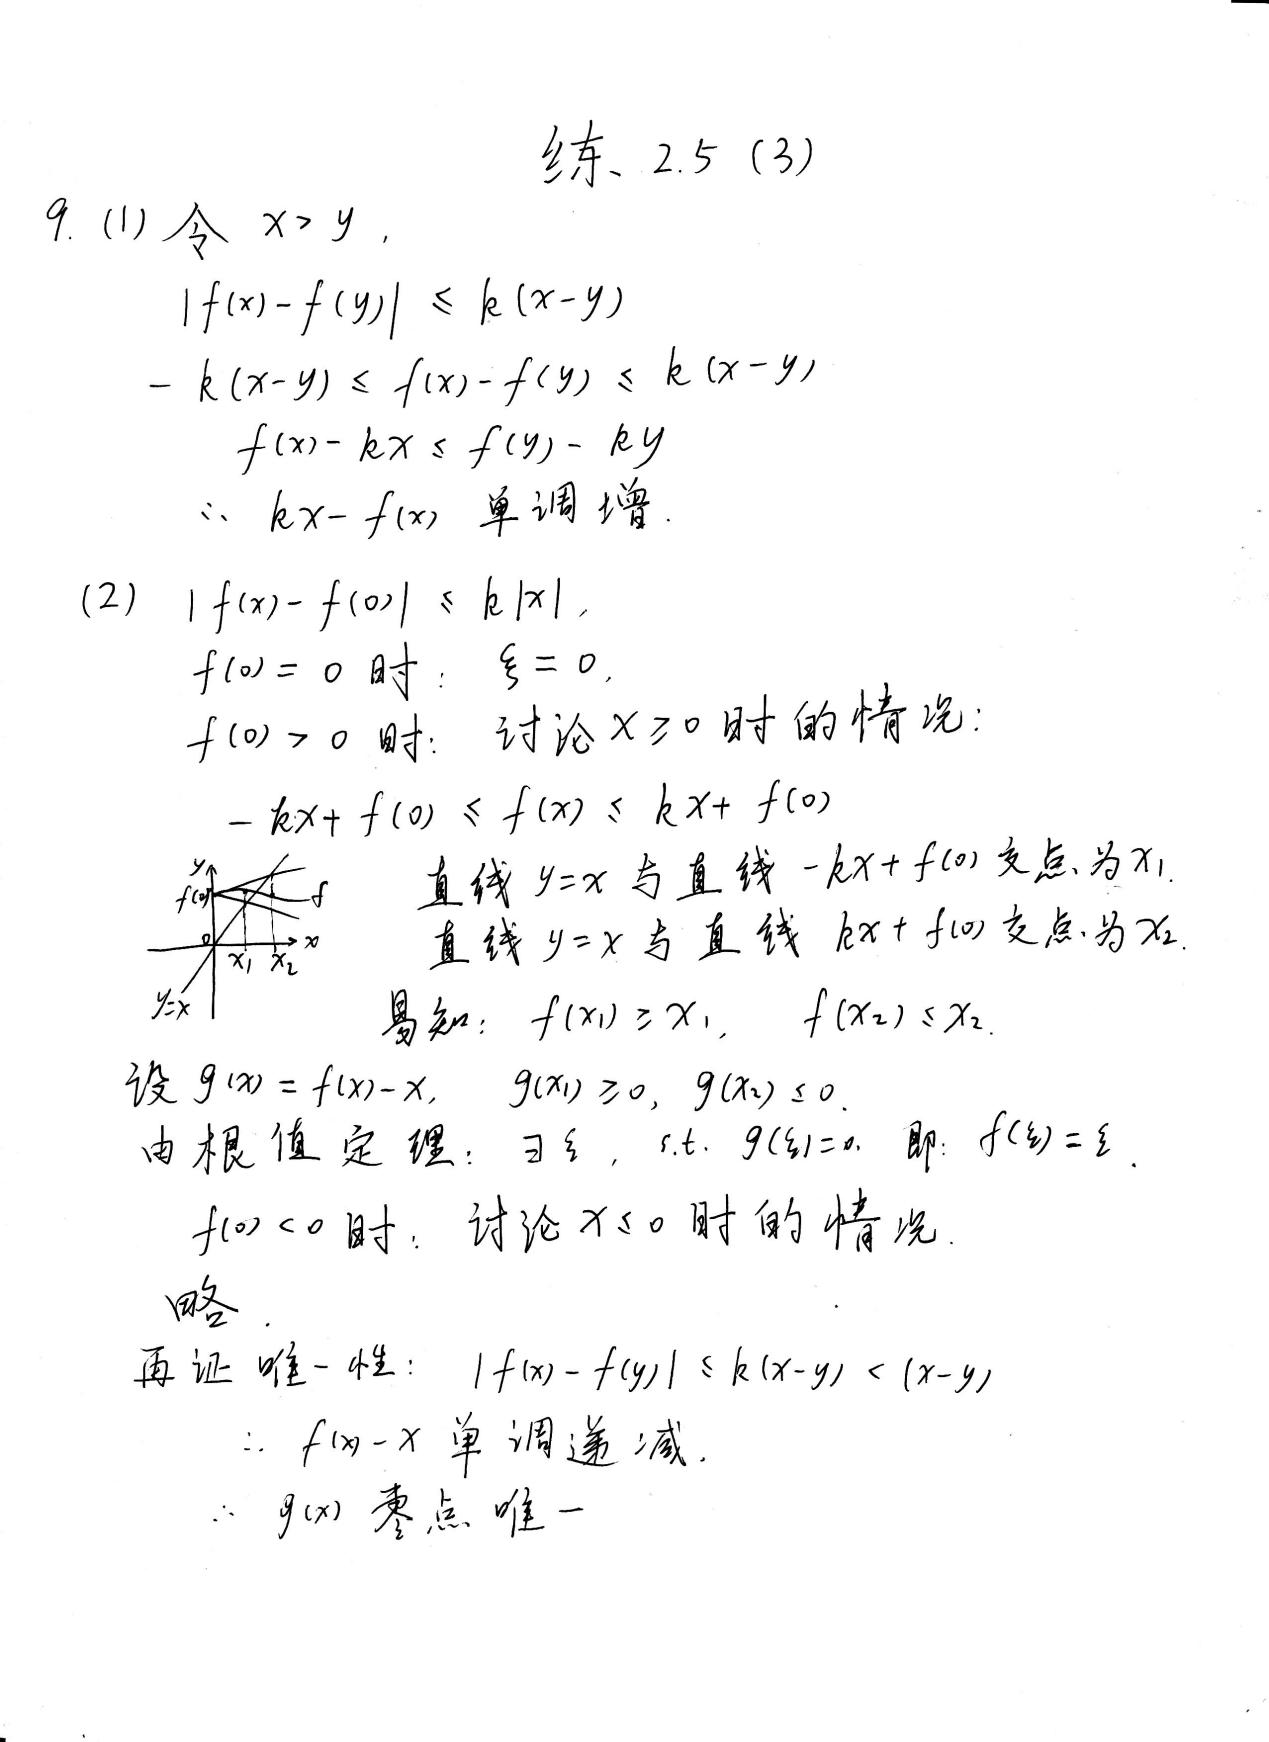 练、2.5 (3)
9. (1) 令 x > y ,
|f(x)-f(y)| ≤ k(x-y)
- k(x-y) ≤ f(x)-f(y) ≤ k(x-y)
f(x)-kx ≤ f(y)-ky
∴ kx-f(x) 单调增.
(2) |f(x)-f(0)| ≤ k|x|,
f(0)=0 时: ξ=0,
f(0)>0 时: 讨论 x≥0 时的情况:
-kx+f(0) ≤ f(x) ≤ kx+f(0)
直线 y=x 与直线 -kx+f(0) 交点、为 x₁.
直线 y=x 与直线 kx+f(0) 交点、为 x₂.
y
f(0)
f
0
x₁
x₂
x
y=x
易知: f(x₁) ≥ x₁, f(x₂) ≤ x₂.
设 g(x)=f(x)-x, g(x₁)≥0, g(x₂)≤0.
由根值定理: ∃ξ, s.t. g(ξ)=0. 即: f(ξ)=ξ.
f(0)<0 时: 讨论 x≤0 时的情况.
略.
再证唯一性: |f(x)-f(y)| ≤ k(x-y) < (x-y)
∴ f(x)-x 单调递减.
∴ g(x) 零点唯一